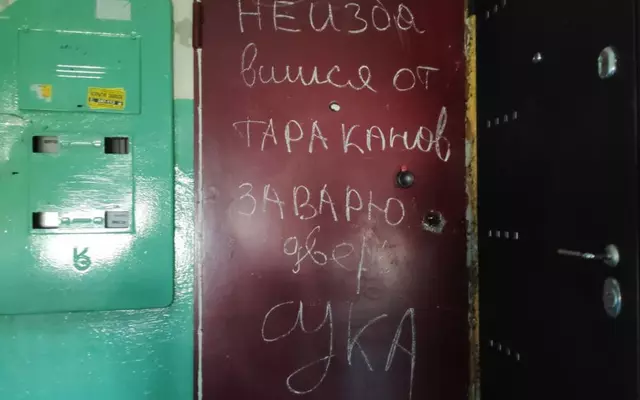 НЕИЗБА
вишся от
ТАРАКАНОВ
ЗАВАРЮ
двер
сукА